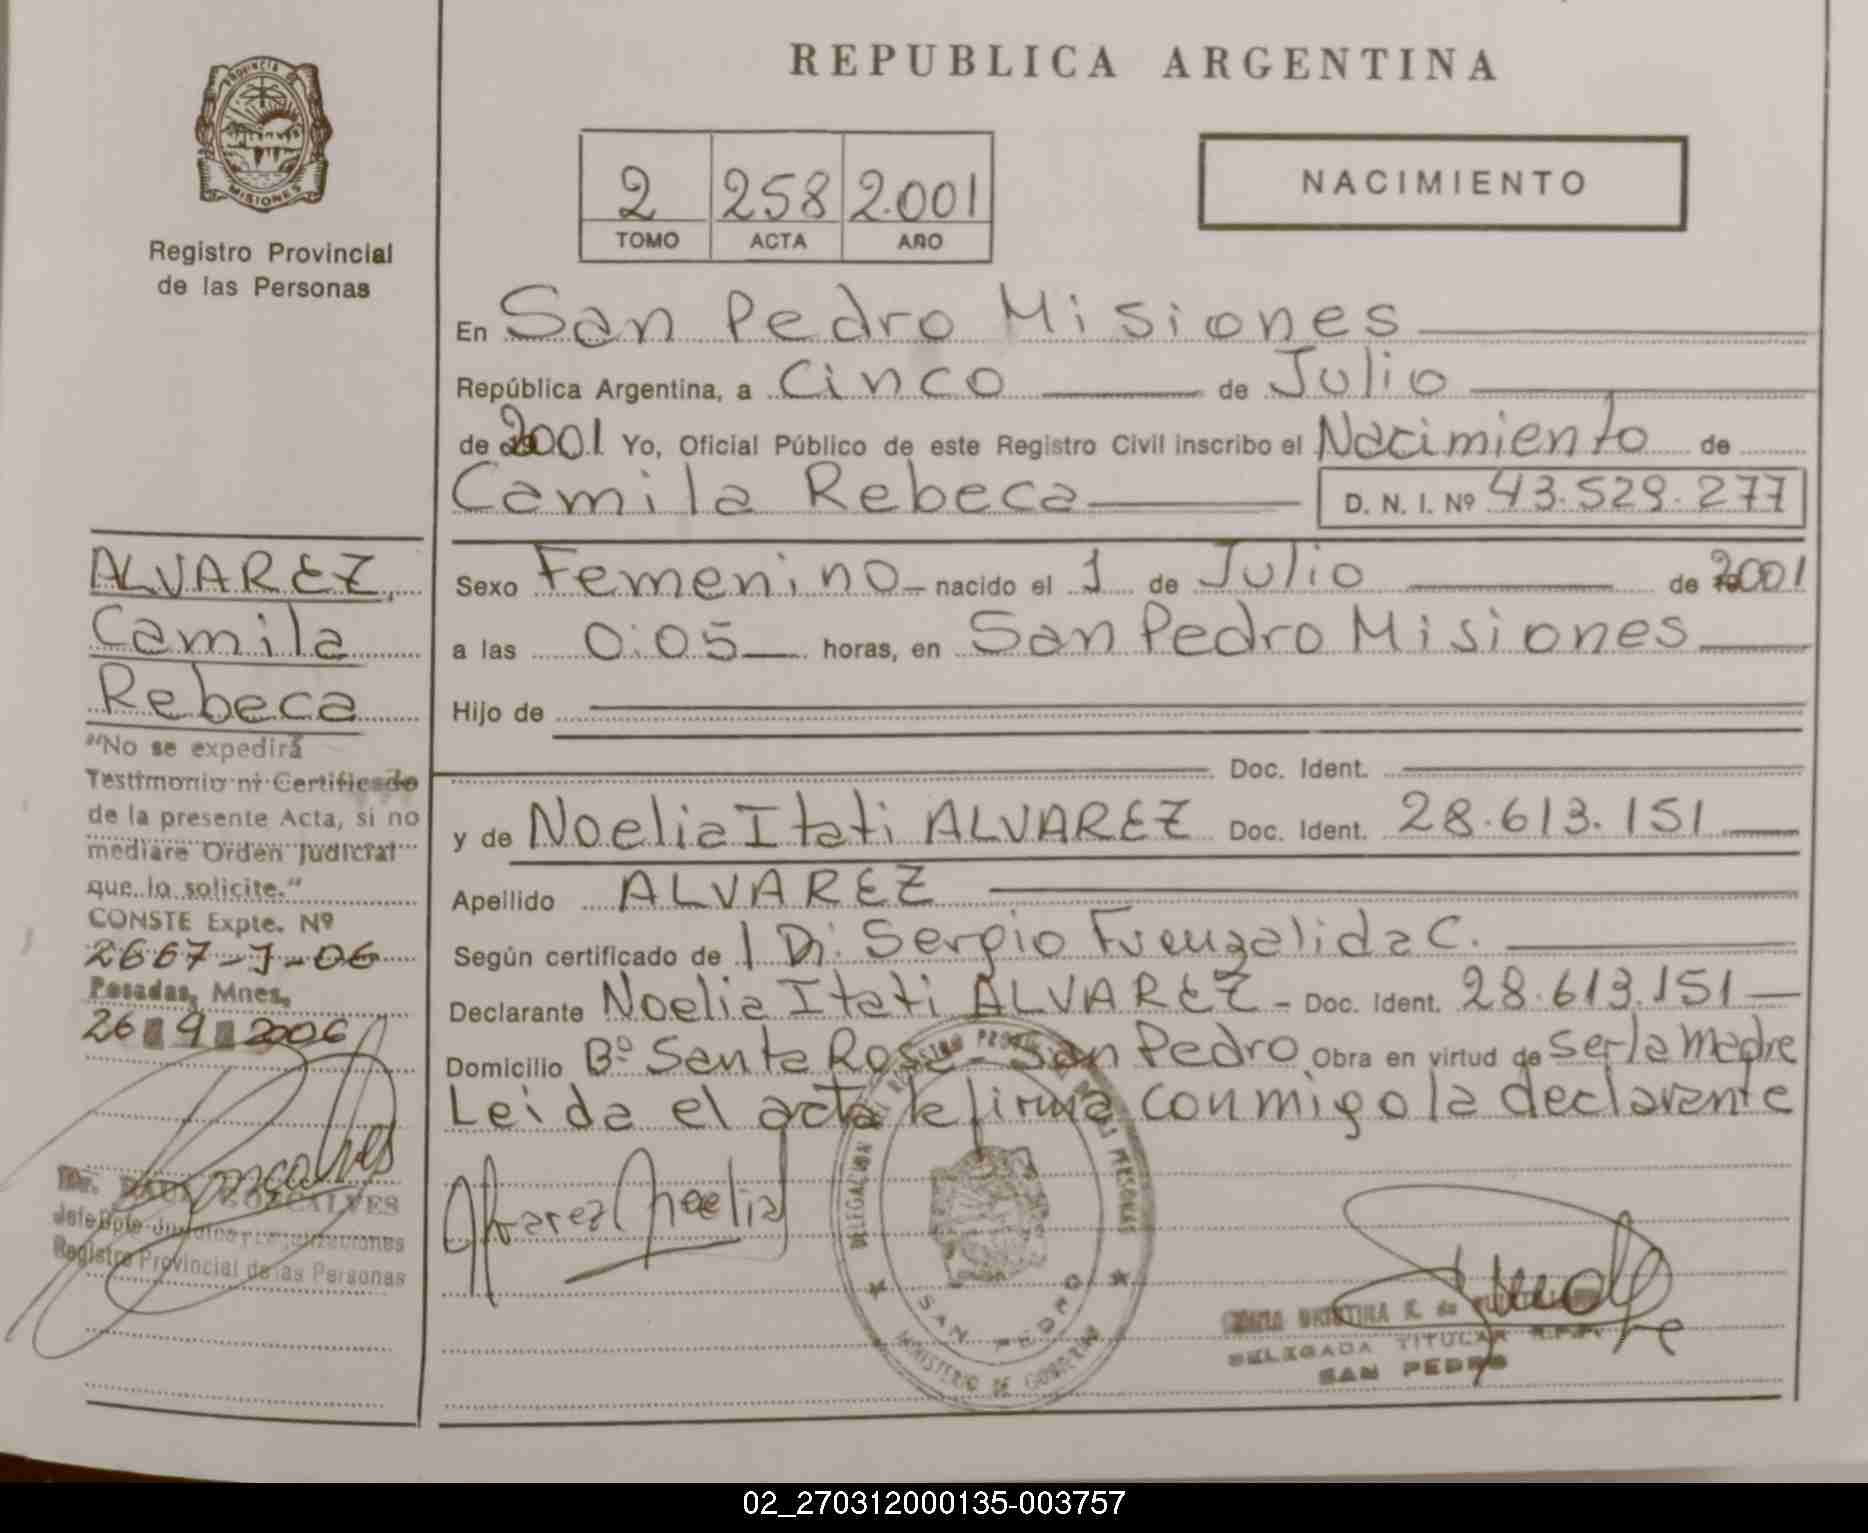 REPUBLICA ARGENTINA
PROVINCIA DE
MISIONES
Registro Provincial
de las Personas
2 258 2.001
TOMO ACTA AÑO
NACIMIENTO
En San Pedro Misiones
República Argentina, a Cinco de Julio
de 2001 Yo, Oficial Público de este Registro Civil inscribo el Nacimiento de
Camila Rebeca D. N. I. Nº 43.529.277
Sexo Femenino nacido el 1 de Julio de 2001
a las 0:05 horas, en San Pedro Misiones
Hijo de
Doc. Ident.
y de Noelia Itati ALVAREZ Doc. Ident. 28.613.151
Apellido ALVAREZ
Según certificado de Sergio Fuenzalida C.
Declarante Noelia Itati ALVAREZ - Doc. Ident. 28.613.151
Domicilio Bº Santa Rosa - San Pedro Obra en virtud de ser la madre
Leida el acta la firma conmigo la declarante
Alvarez Noelia
ALVAREZ,
Camila
Rebeca
"No se expedirá
Testimonio ni Certificado
de la presente Acta, si no
mediare Orden Judicial
que lo solicite."
CONSTE Expte. Nº
2667-J-06
Posadas, Mnes,
26 9 2006
Dr. GONCALVES
Registro Provincial de las Personas
SAN PEDRO
MINISTERIO DE GOBIERNO
DELEGADA TITULAR
SAN PEDRO
02_270312000135-003757